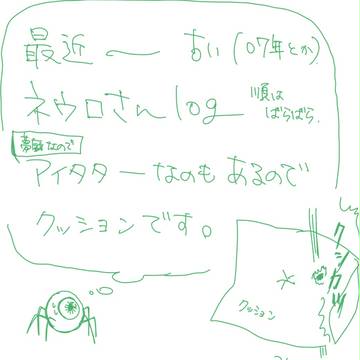 最近〜古い(07年とか)
ネウロさんlog 順はばらばら.
夢絵なので
アイタターなのもあるので
クッションです。
クッション